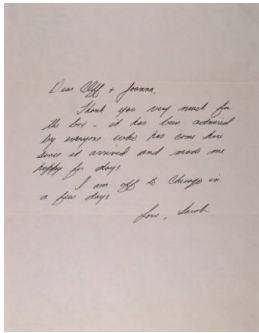 Dear Cliff & Joanna,
Thank you very much for
the box - it has been admired
by everyone who has come here
since it arrived and made me
happy for days
I am off to Chicago in
a few days
Love, Sarah